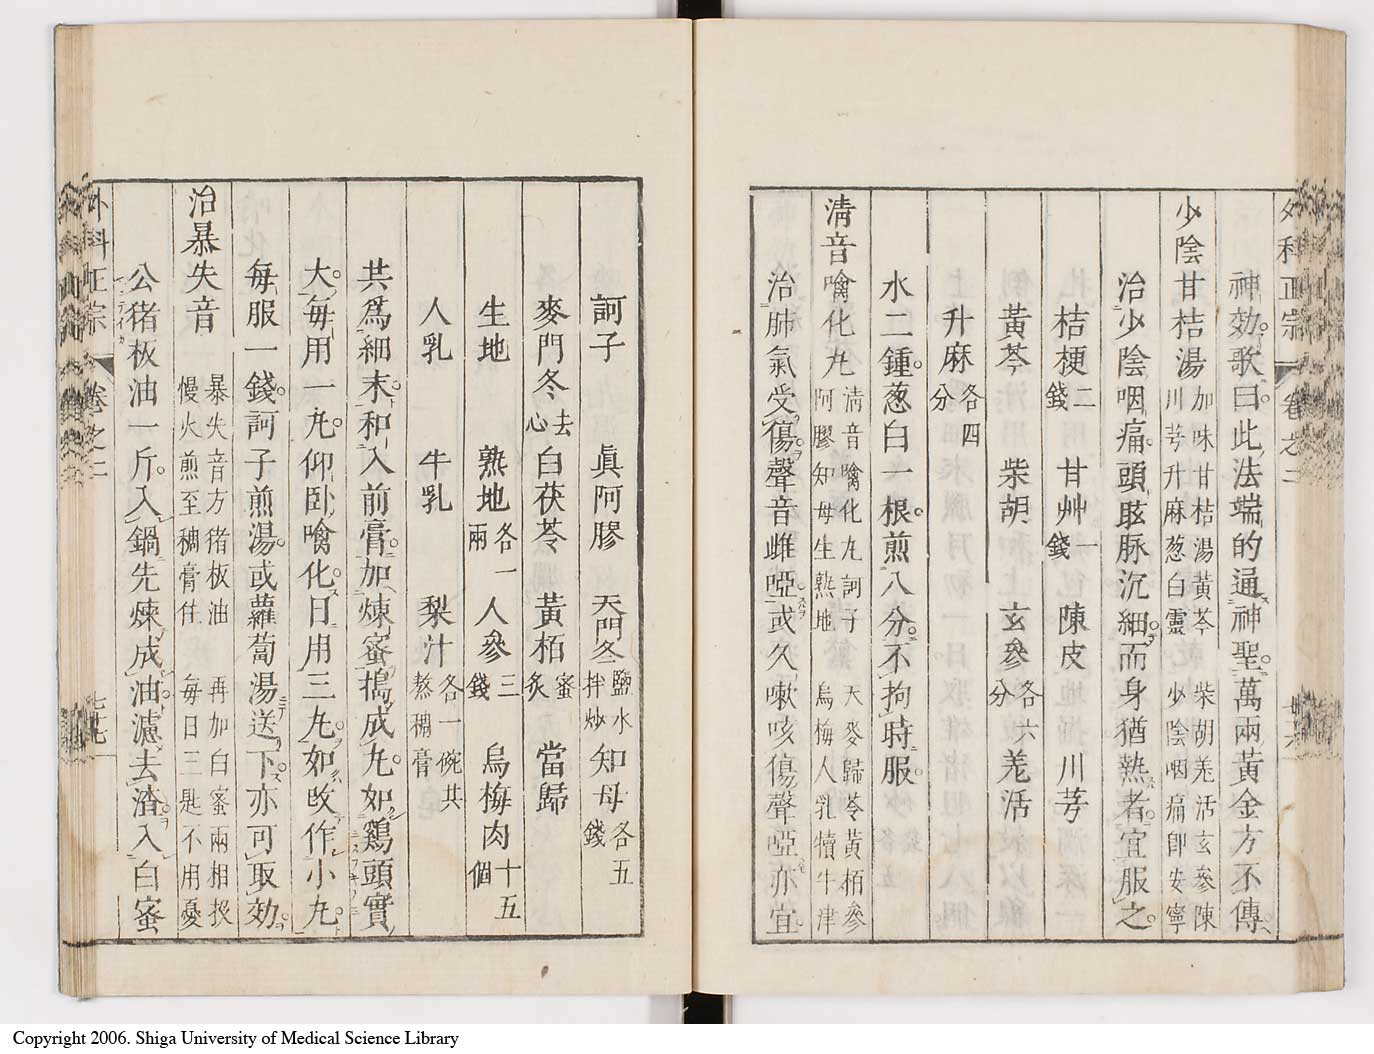 外科正宗 卷之二 廿六
神効歌曰此法端的通神聖萬兩黃金方不傳
少陰甘桔湯 加味甘桔湯黃芩 柴胡羗活玄參陳
川芎升麻葱白靈 少陰咽痛卽安寧
治少陰咽痛頭眩脉沉細而身猶熱者宜服之
桔梗二錢 甘艸一錢 陳皮 川芎
黃芩 柴胡 玄參各六分 羗活
升麻各四分
水二鍾葱白一根煎八分不拘時服
清音噙化丸 清音噙化丸訶子 天麥歸苓黃栢參
阿膠知母生熟地 烏梅人乳犢牛津
治肺氣受傷聲音雌啞或久嗽咳傷聲啞亦宜
訶子 眞阿膠 天門冬鹽水拌炒 知母各五錢
麥門冬去心 白茯苓 黃栢蜜炙 當歸
生地 熟地各一兩 人參三錢 烏梅肉十五個
人乳 牛乳 梨汁各一碗共熬稠膏
共爲細末和入前膏加煉蜜搗成丸如鷄頭實
大每用一丸仰臥噙化日用三丸如改作小丸
每服一錢訶子煎湯或蘿蔔湯送下亦可取効
治暴失音 暴失音方猪板油 再加白蜜兩相投
慢火煎至稠膏住 每日三匙不用憂
公猪板油一斤入鍋先煉成油濾去渣入白蜜
外科正宗 卷之二 七七
Copyright 2006. Shiga University of Medical Science Library